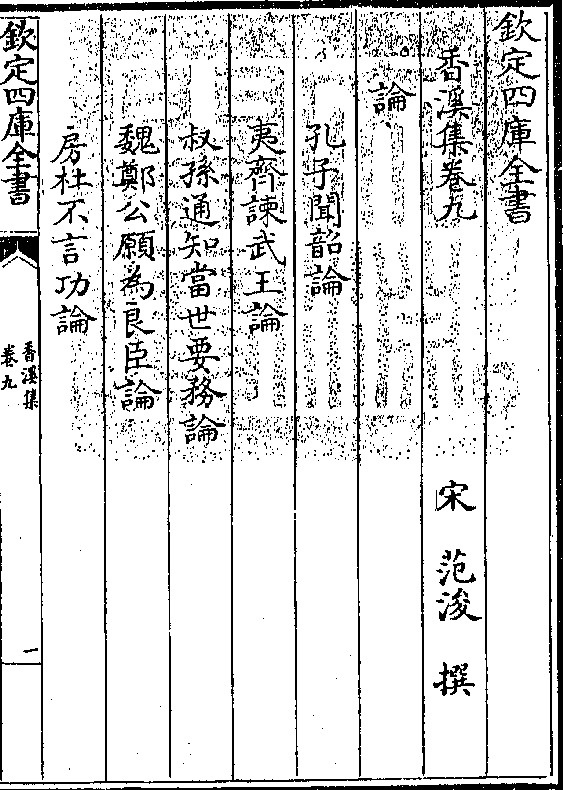 欽定四庫全書
香溪集卷九
宋 范浚 撰
論
孔子聞韶論
夷齊諫武王論
叔孫通知當世要務論
魏鄭公願為良臣論
房杜不言功論
欽定四庫全書
香溪集
卷九
一